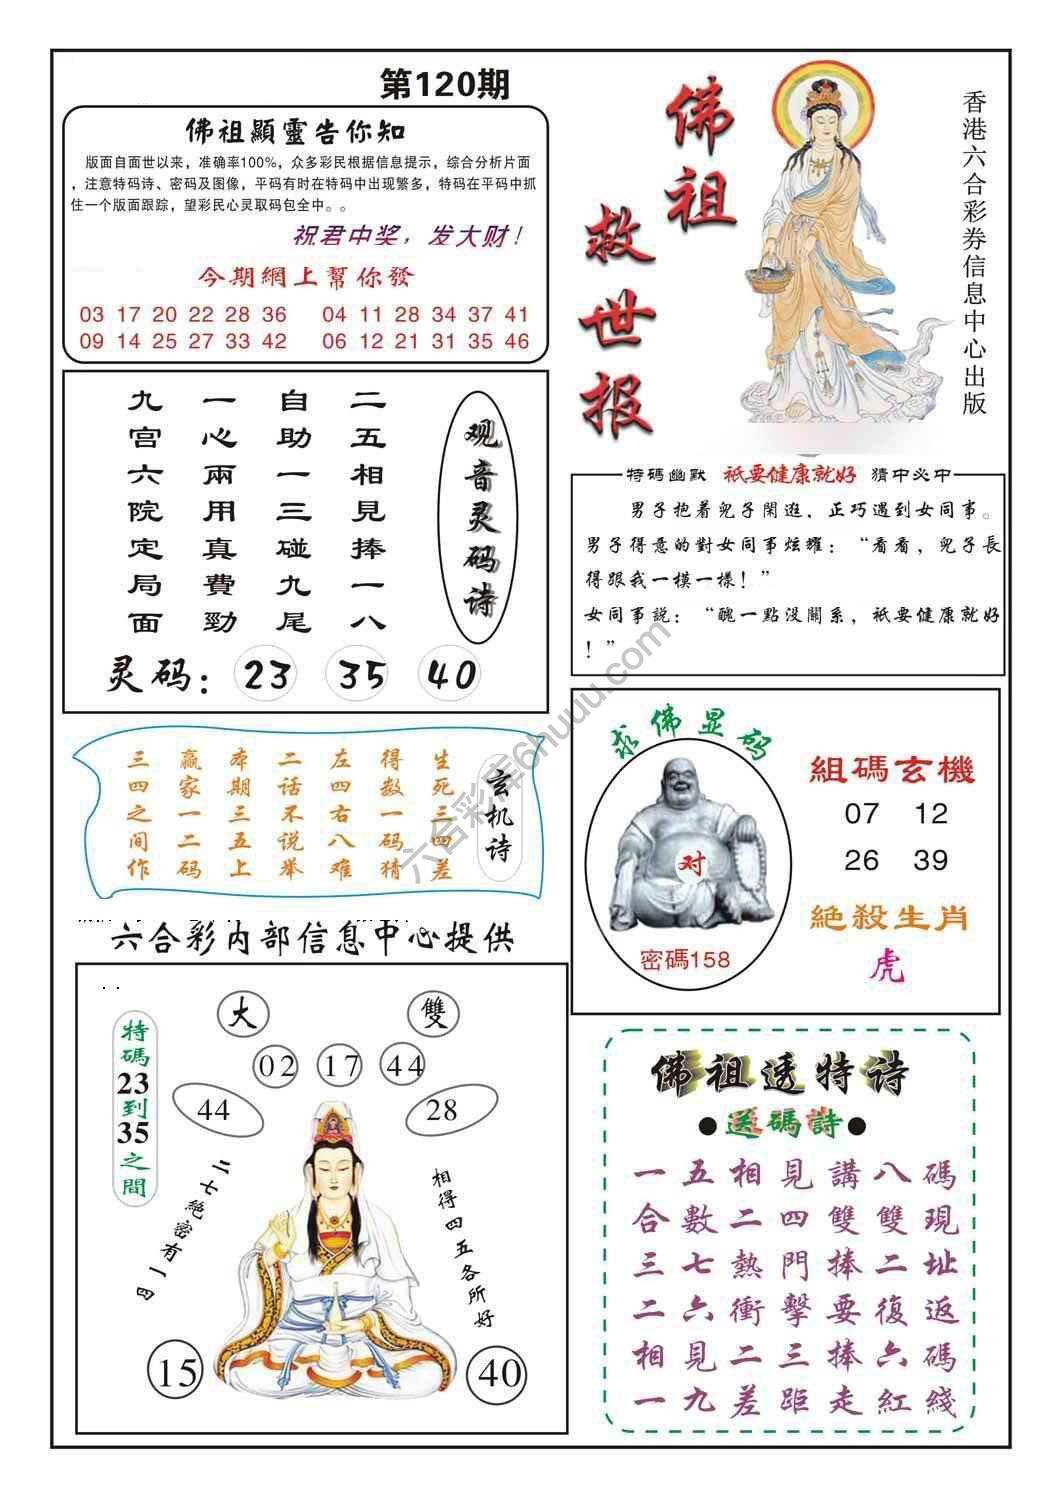 第120期
佛祖顯靈告你知
版面自面世以来，准确率100%，众多彩民根据信息提示，综合分析片面
，注意特码诗、密码及图像，平码有时在特码中出现繁多，特码在平码中抓
住一个版面跟踪，望彩民心灵取码包全中。。
祝君中奖，发大财！
今期網上幫你發
03 17 20 22 28 36 04 11 28 34 37 41
09 14 25 27 33 42 06 12 21 31 35 46
佛祖
救世报
香港六合彩券信息中心出版
观音灵码诗
二五相見捧一八
自助一三碰九尾
一心兩用真費勁
九宫六院定局面
灵码：23 35 40
特碼幽默 祇要健康就好 猜中必中
男子抱着兒子閑逛，正巧遇到女同事。
男子得意的對女同事炫耀：“看看，兒子長
得跟我一模一樣！”
女同事説：“醜一點没關系，祇要健康就好
！”
玄机诗
生死三四差
得数一码猜
左四右八难
二话不说举
本期三五上
赢家一二码
三四之间作
求佛显码
对
密碼158
組碼玄機
07 12
26 39
絶殺生肖
虎
六合彩内部信息中心提供
特碼23到35之間
大 雙
02 17 44
44 28
二七絶密有一四
相得四五各所好
15 40
佛祖透特诗
●送碼詩●
一五相見講八碼
合數二四雙雙現
三七熱門捧二址
二六衝擊要復返
相見二三捧六碼
一九差距走紅綫
六合彩库6huuu.com